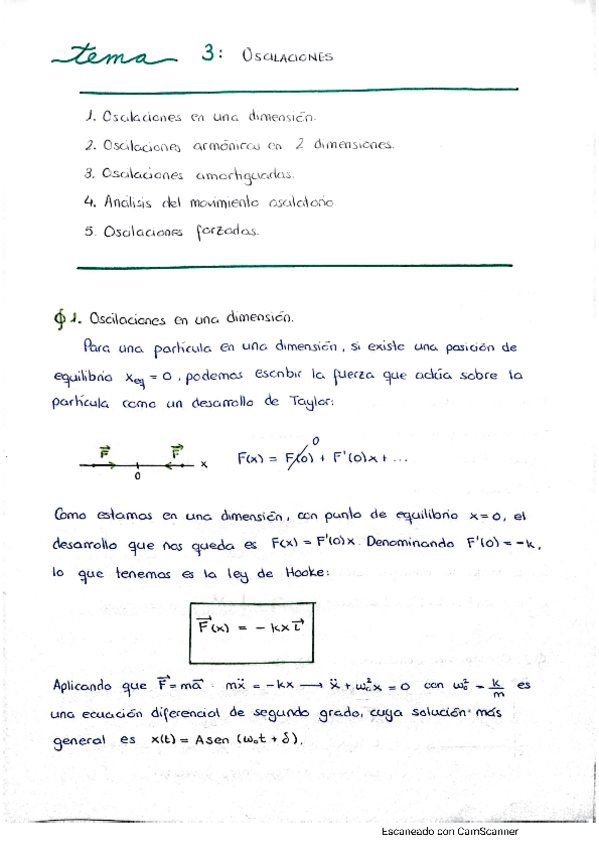 tema 3: OSCILACIONES
1. Oscilaciones en una dimensión.
2. Oscilaciones armónicas en 2 dimensiones.
3. Oscilaciones amortiguadas.
4. Análisis del movimiento oscilatorio
5. Oscilaciones forzadas.
§1. Oscilaciones en una dimensión.
Para una partícula en una dimensión, si existe una posición de
equilibrio x_eq = 0, podemos escribir la fuerza que actúa sobre la
partícula como un desarrollo de Taylor:
F⃗ F⃗ x 0
F(x) = F(0) + F'(0)x + ... 0
Como estamos en una dimensión, con punto de equilibrio x=0, el
desarrollo que nos queda es F(x) = F'(0)x. Denominando F'(0) = -k,
lo que tenemos es la ley de Hooke:
F⃗(x) = - kx i⃗
Aplicando que F⃗=ma⃗ : mẍ = -kx → ẍ + ω₀²x = 0 con ω₀² = k/m es
una ecuación diferencial de segundo grado, cuya solución más
general es x(t) = A sen (ω₀t + δ).
Escaneado con CamScanner